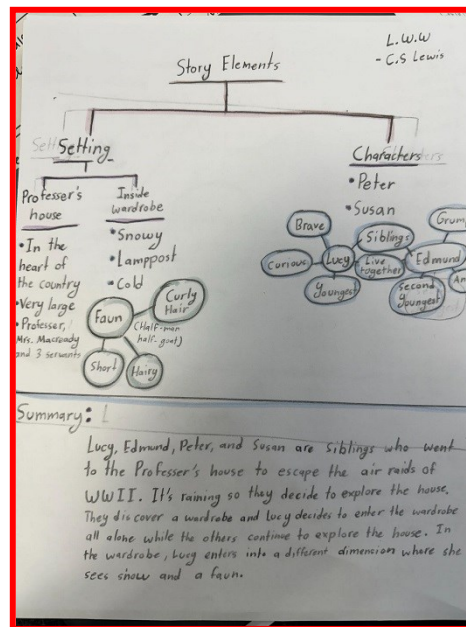 L.W.W
- C.S Lewis
Story Elements
Setting
Professer's
house
• In the
heart of
the country
• Very large
• Professer,
Mrs. Macready
and 3 servants
Inside
wardrobe
• Snowy
• Lamppost
• Cold
Faun
Curly
Hair
(Half-man
half-goat)
Short
Hairy
Characters
• Peter
• Susan
Brave
Curious
Lucy
Youngest
Siblings
Live
together
Edmund
Second
Youngest
Summary:
Lucy, Edmund, Peter, and Susan are siblings who went
to the Professer's house to escape the air raids of
WWII. It's raining so they decide to explore the house.
They discover a wardrobe and Lucy decides to enter the wardrobe
all alone while the others continue to explore the house. In
the wardrobe, Lucy enters into a different dimencion where she
sees snow and a faun.